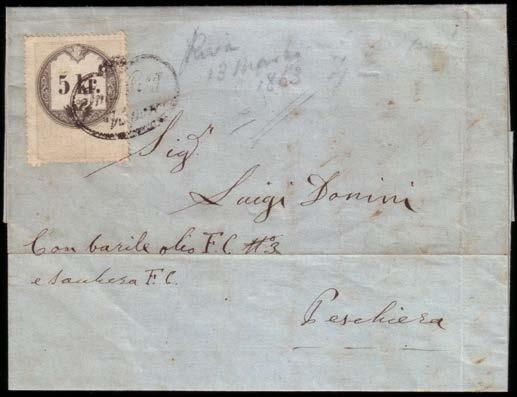 5 kr.
Riva
13 Marzo
1863
Sigr.
Luigi Donini
Con barile olio F. C. No 3
e F. C.
Peschiera